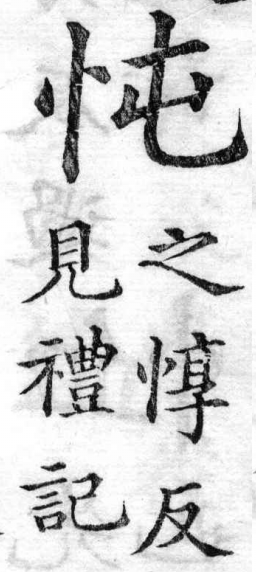 忳
之惇反
見禮記